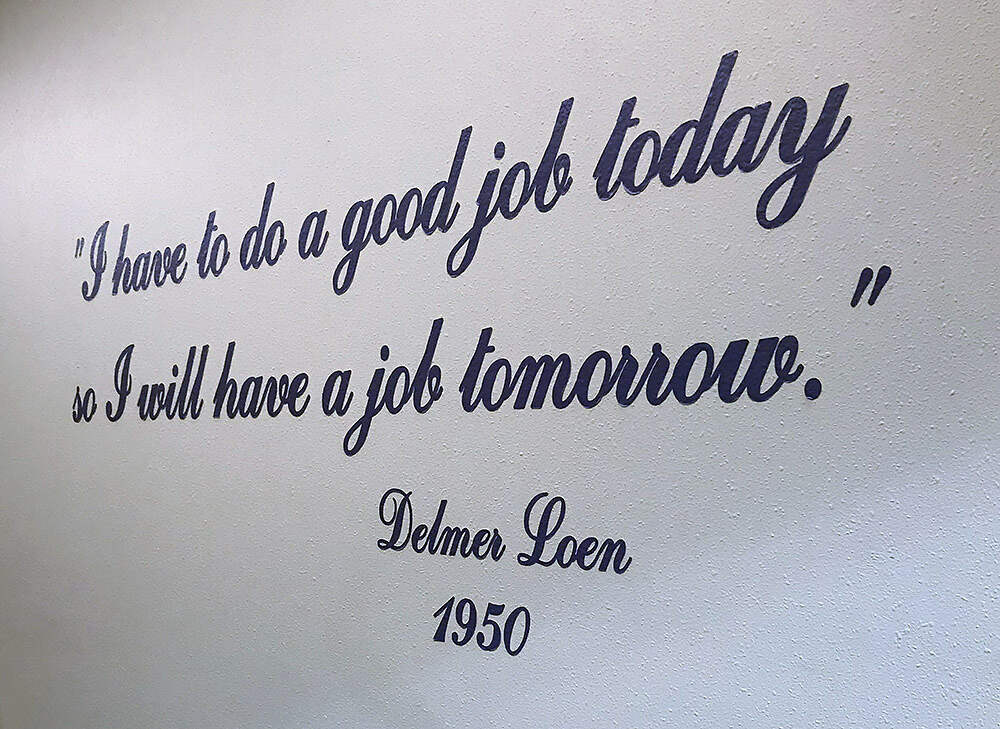 "I have to do a good job today
so I will have a job tomorrow."
Delmer Loen
1950